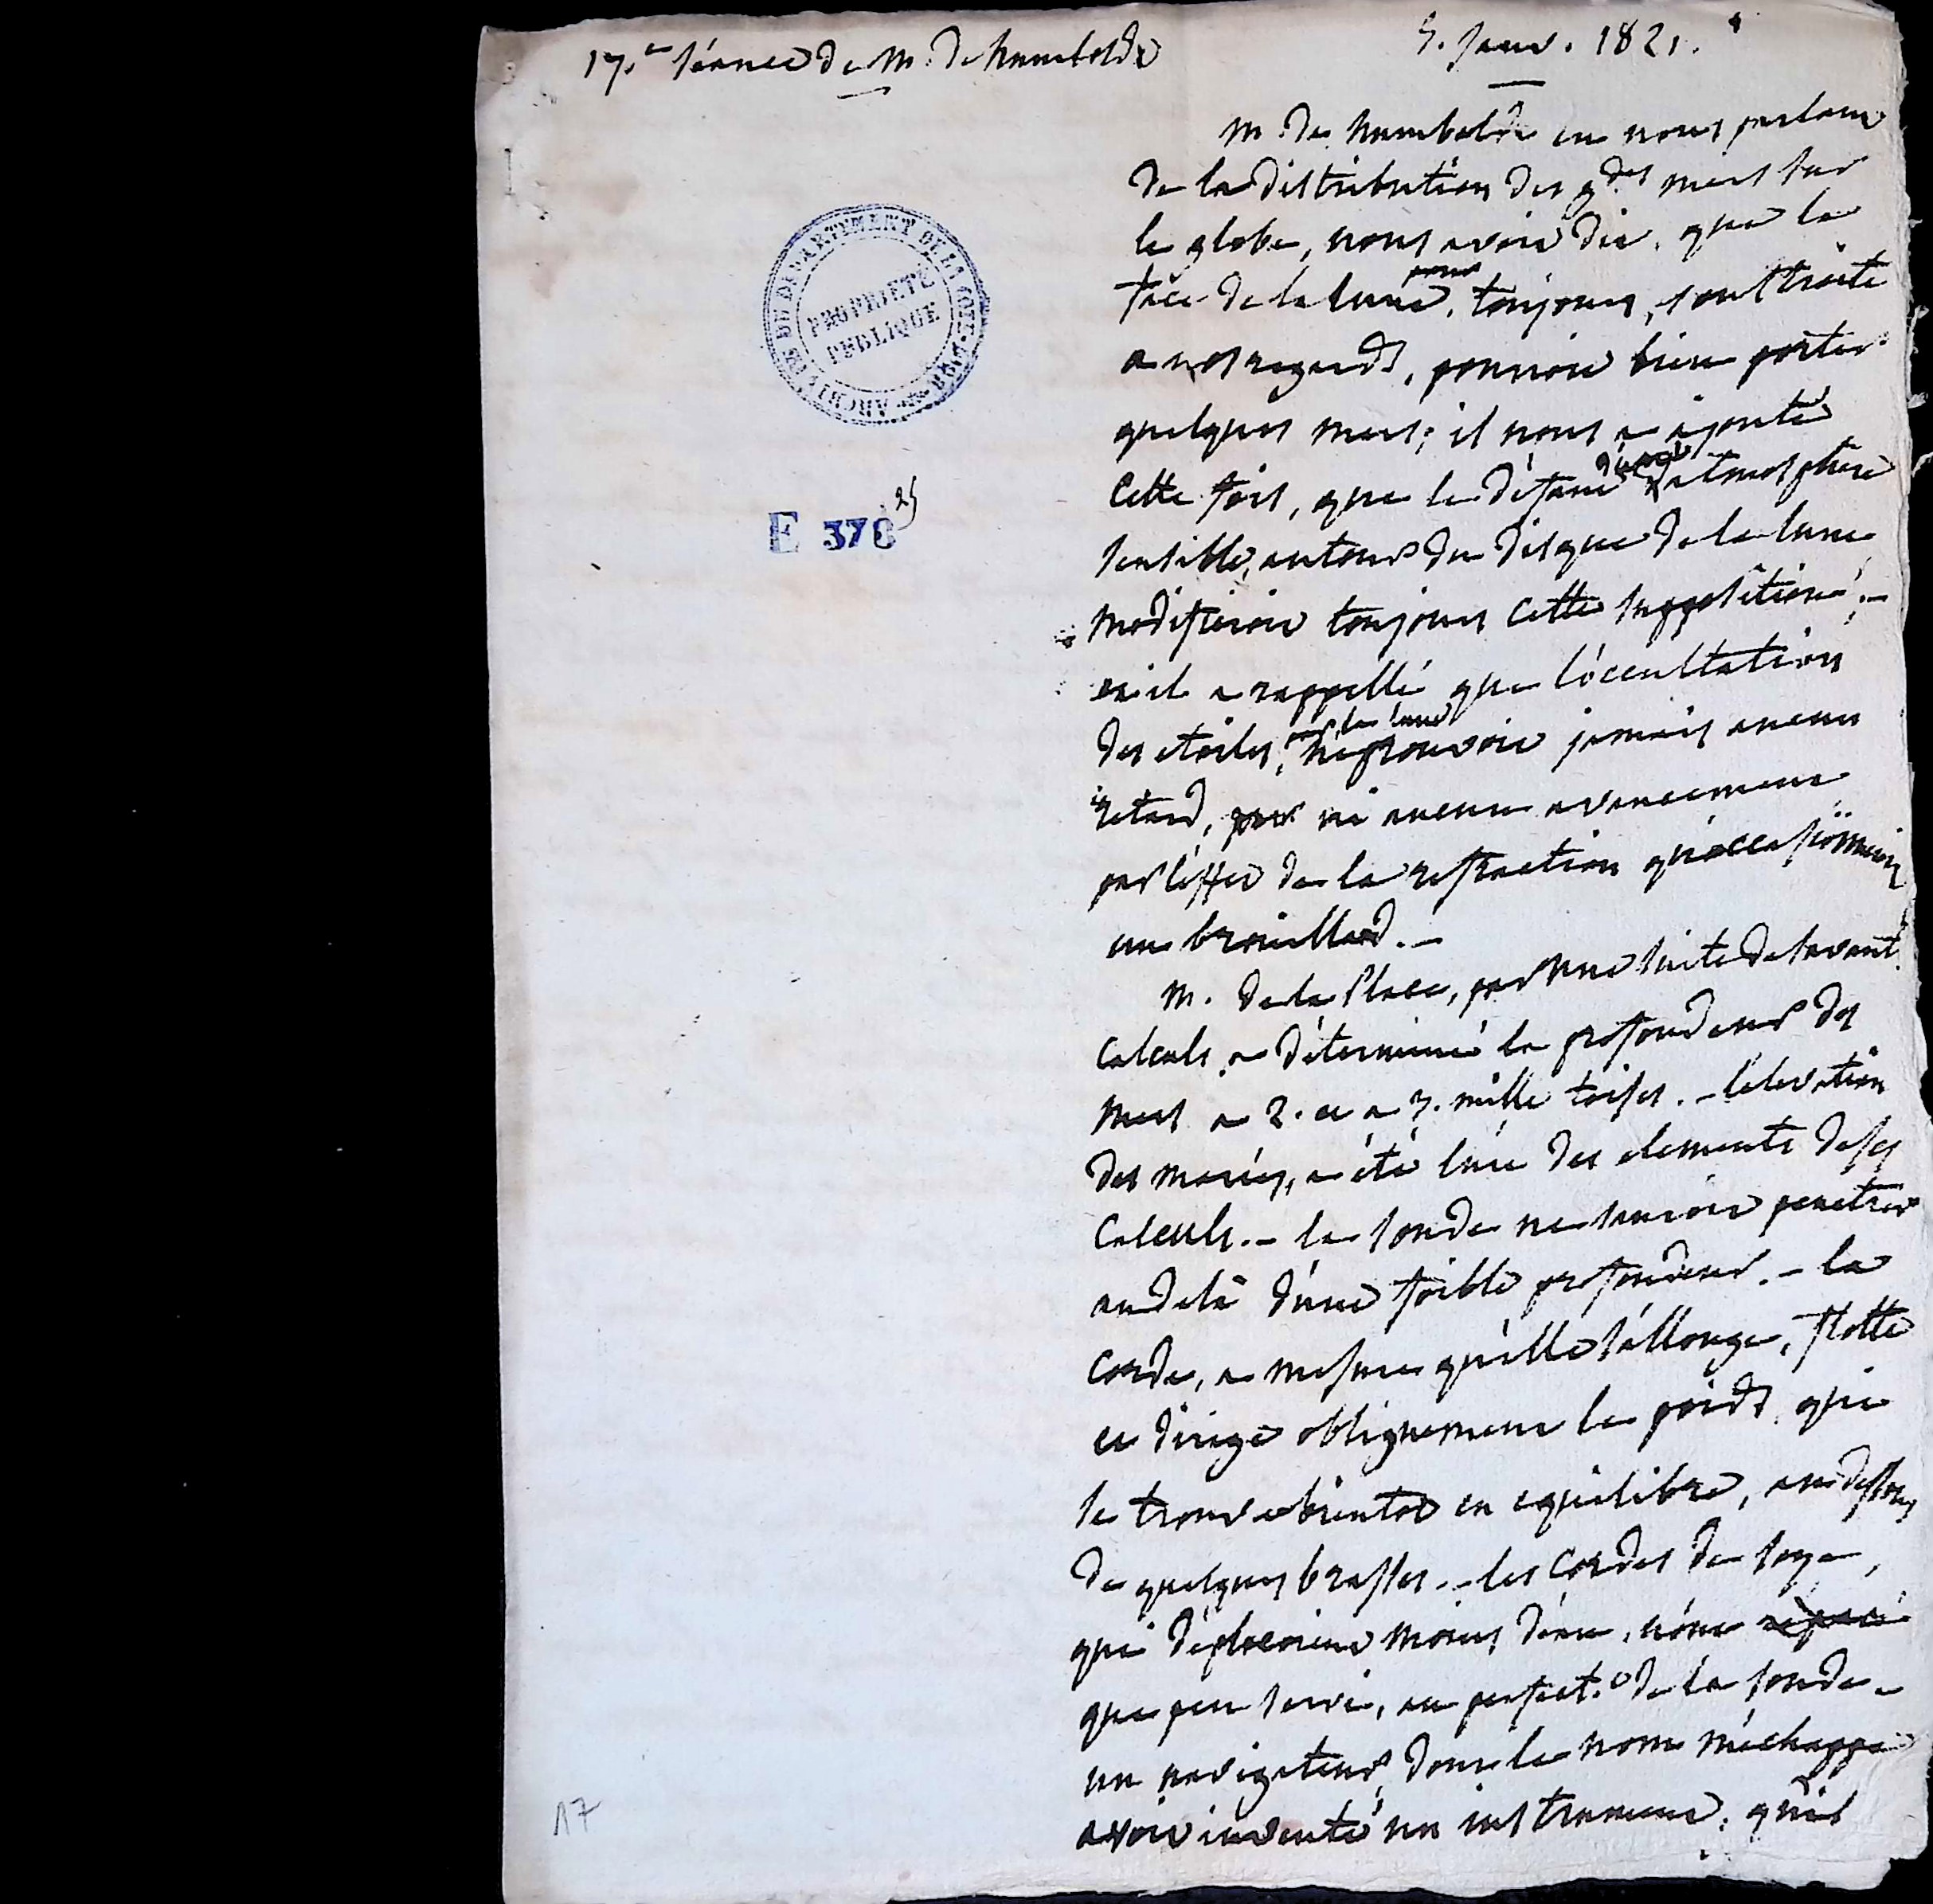 17.e séance de M. de humboldt
5. Janv. 1821.
M. de humboldt en nous parlant
de la distribution des gdes mers sur
le globe, nous avoit dit, que la
face de la lune, pour toujours, soustraite
a nos regards, pourroit bien porter
quelques mers; il nous a ajouté
cette fois, que le défaut d'une atmosphere
sensible, autour du disque de la lune
modifieroit toujours cette supposition; -
et il a rappellé que l'occultation
des etoiles, par la lune n'eprouvoit jamais aucun
retard, par ni aucun avancement
par l'effet de la refraction qu'occasionneroit
un brouillard. -
M. de la Place, par une suite de savants
calculs, a déterminé la profondeur des
mers a 2. et a 3. mille toises. - l'elevation
des marées, a été l'un des elements de ses
calculs. - la sonde ne sauroit penetrer
au dela d'une foible profondeur. - la
corde, a mesure qu'elle s'allonge, flotte
et dirige obliquement le poids qui
se trouve bientot en equilibre, au dessous
de quelques brasses. - les cordes de soye,
qui déplacoient moins d'eau, n'ont
que peu servi, au perfect.t de la sonde. -
un navigateur, dont le nom m'échappe
avoit inventé un instrument, qu'il
ARCHIVES DU DÉPARTEMENT DE LA COTE-D'OR
PROPRIÉTÉ
PUBLIQUE
E 378 25
17